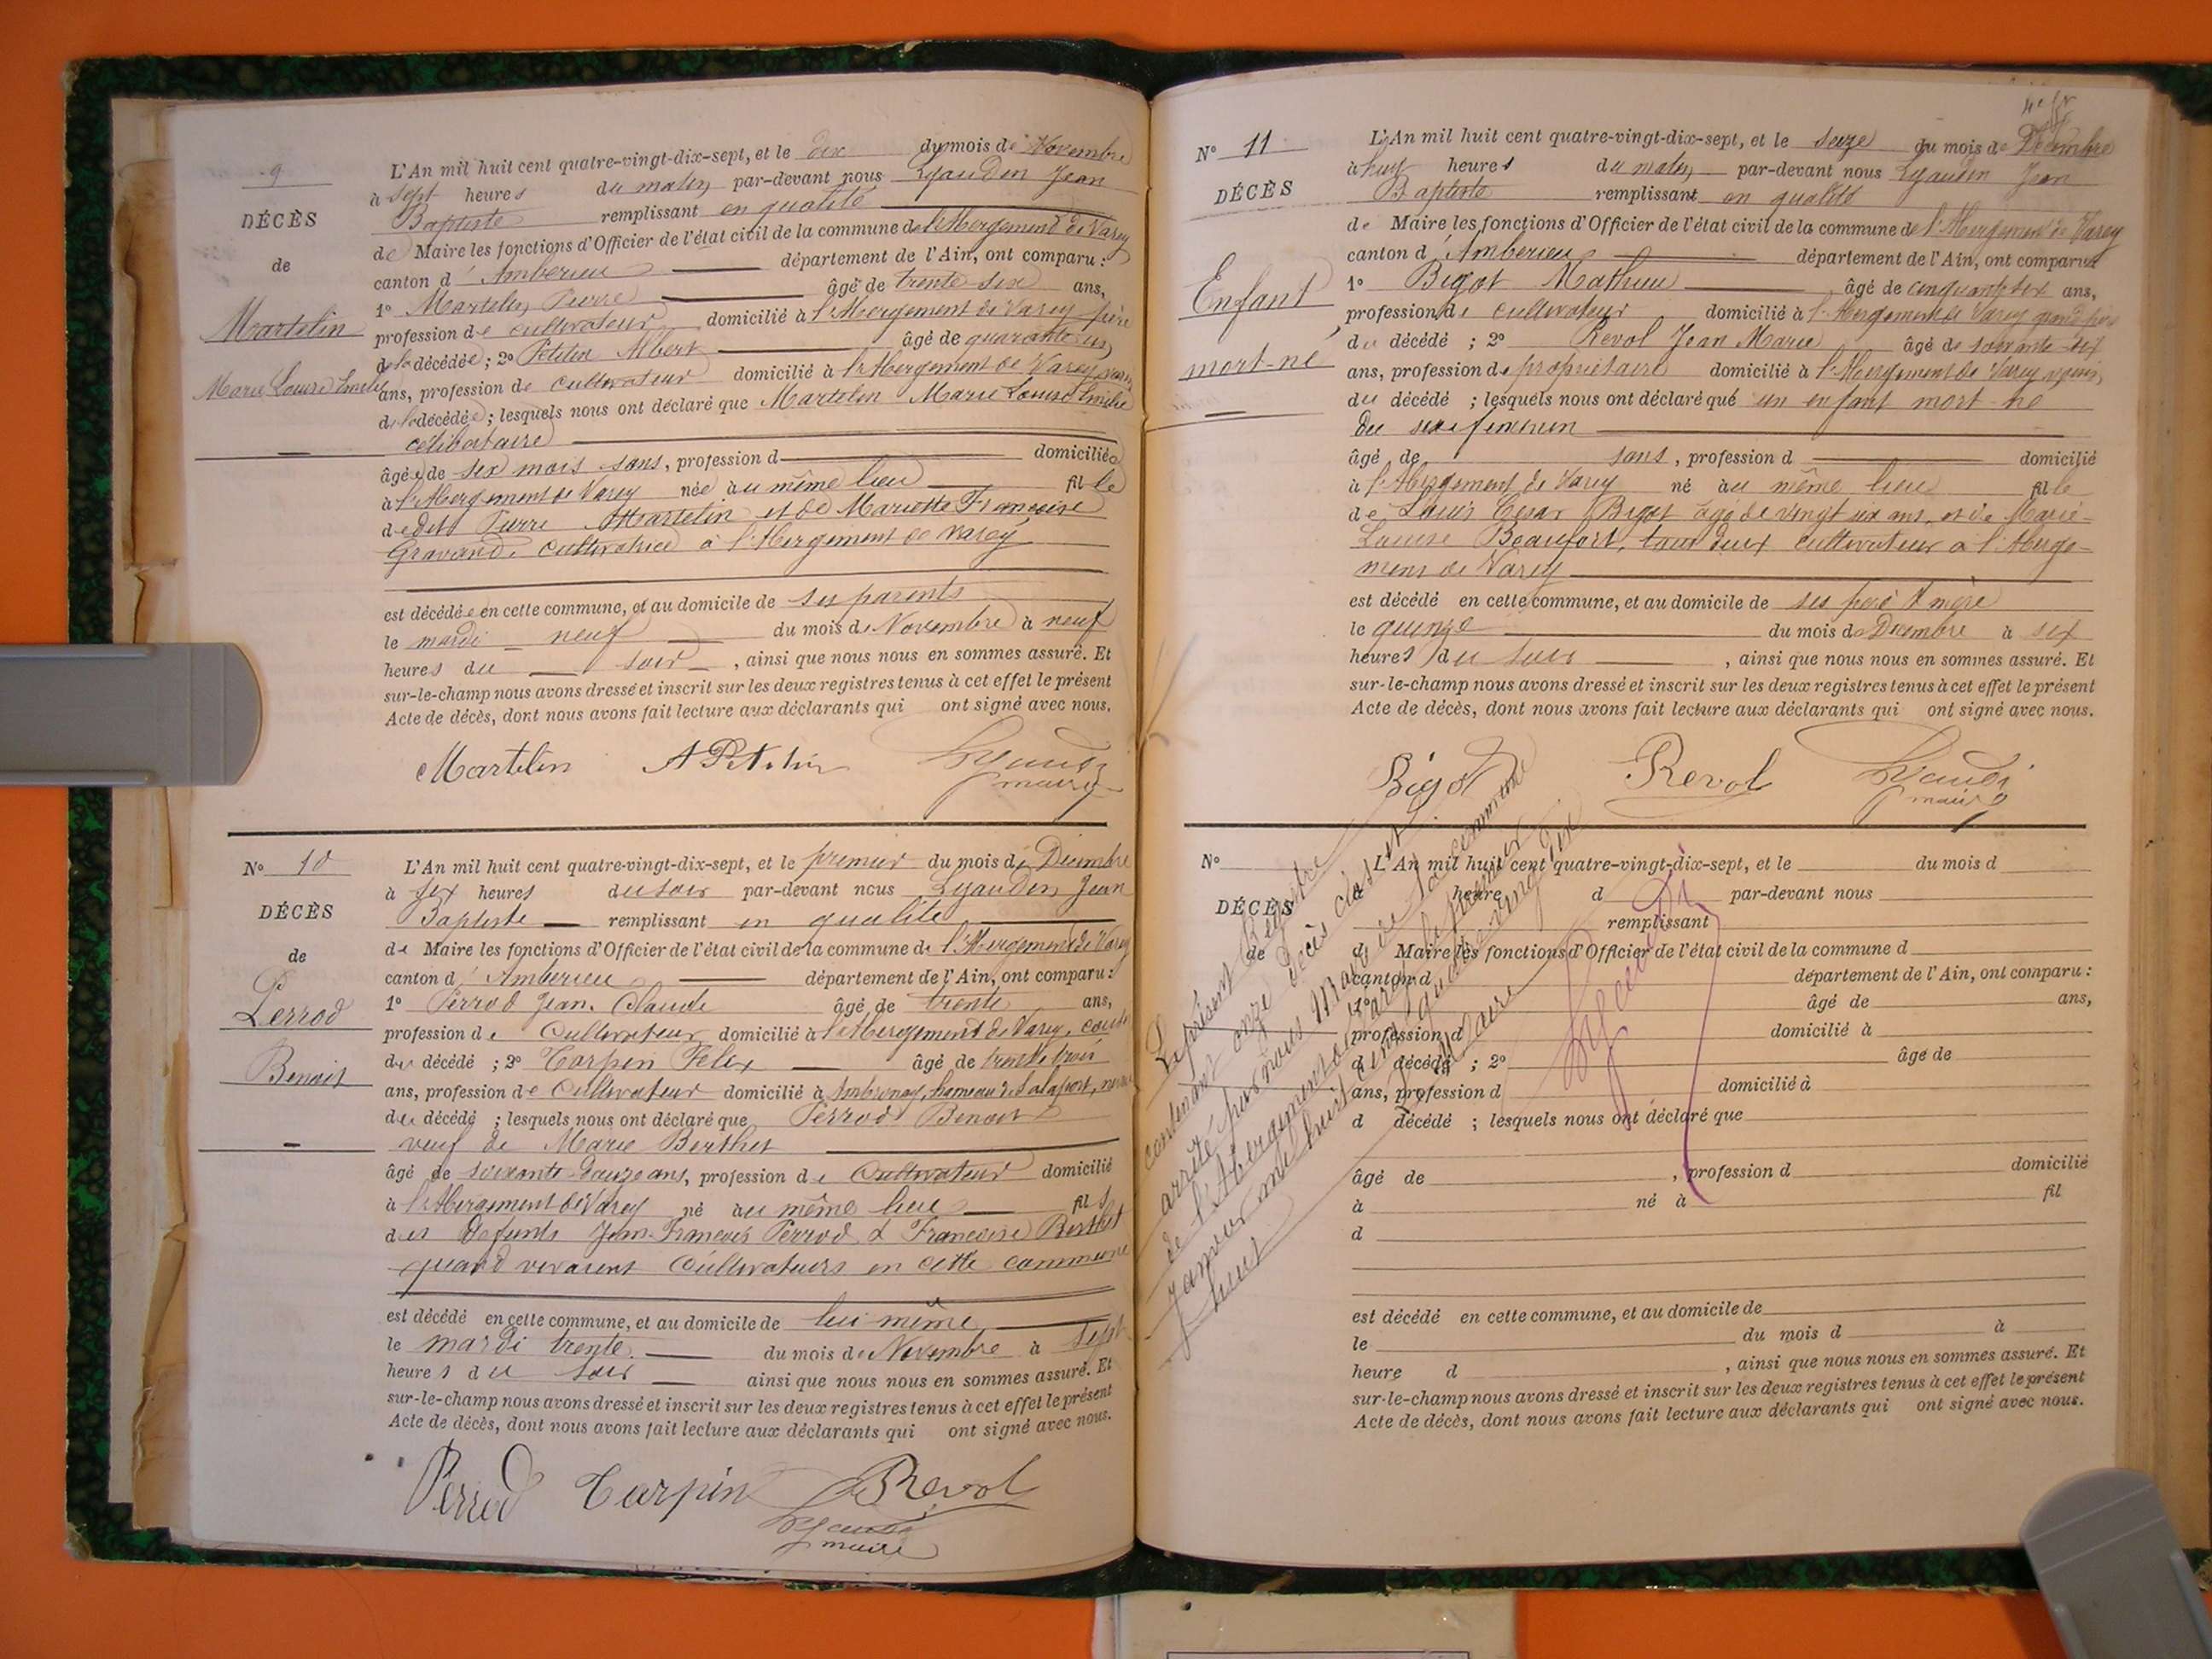 9
DÉCÈS
de
Martelin
Marie Louise Emélie
L'An mil huit cent quatre-vingt-dix-sept, et le dix du mois de Novembre
à sept heures du matin par-devant nous Lyaudin Jean
Baptiste remplissant en qualité
de Maire les fonctions d'Officier de l'état civil de la commune de l'Abergement de Varey
canton d'Amberieu département de l'Ain, ont comparu :
1° Martelin Pierre âgé de trente six ans,
profession de cultivateur domicilié à l'Abergement de Varey père
de la décédée ; 2° Petitin Albert âgé de quarante un
ans, profession de cultivateur domicilié à l'Abergement de Varey voisin
de la décédée ; lesquels nous ont déclaré que Martelin Marie Louise Emélie
célibataire
âgée de six mois sans, profession d domiciliée
à l'Abergement de Varey née au même lieu fille
de dit Pierre Martelin et de Mariette Françoise
Gravand, cultivatrice à l'Abergement de Varey
est décédée en cette commune, et au domicile de ses parents
le mardi neuf du mois de Novembre à neuf
heures du soir, ainsi que nous nous en sommes assuré. Et
sur-le-champ nous avons dressé et inscrit sur les deux registres tenus à cet effet le présent
Acte de décès, dont nous avons fait lecture aux déclarants qui ont signé avec nous.
Martelin A Petitin Lyaudin
maire
N° 10
DÉCÈS
de
Perrod
Benoit
L'An mil huit cent quatre-vingt-dix-sept, et le premier du mois de Décembre
à six heures du soir par-devant nous Lyaudin Jean
Baptiste remplissant en qualité
de Maire les fonctions d'Officier de l'état civil de la commune de l'Abergement de Varey
canton d'Amberieu département de l'Ain, ont comparu :
1° Perrod Jean Claude âgé de trente ans,
profession de Cultivateur domicilié à l'Abergement de Varey, cousin
du décédé ; 2° Carpin Félix âgé de trente trois
ans, profession de Cultivateur domicilié à Ambronay, hameau de Salaport, neveu
du décédé ; lesquels nous ont déclaré que Perrod Benoit
veuf de Marie Berthet
âgé de soixante-douze ans, profession de Cultivateur domicilié
à l'Abergement de Varey né au même lieu fils
des défunts Jean-François Perrod & Françoise Berthet
quand vivaient cultivateurs en cette commune
est décédé en cette commune, et au domicile de lui même
le mardi trente du mois de Novembre à sept
heures du soir ainsi que nous nous en sommes assuré. Et
sur-le-champ nous avons dressé et inscrit sur les deux registres tenus à cet effet le présent
Acte de décès, dont nous avons fait lecture aux déclarants qui ont signé avec nous.
Perrod Carpin Revol
Lyaudin
maire
N° 11
DÉCÈS
Enfant
mort-né
L'An mil huit cent quatre-vingt-dix-sept, et le seize du mois de Décembre
à huit heures du matin par-devant nous Lyaudin Jean
Baptiste remplissant en qualité
de Maire les fonctions d'Officier de l'état civil de la commune de l'Abergement de Varey
canton d'Amberieu département de l'Ain, ont comparu
1° Bigot Mathieu âgé de cinquante six ans,
profession de cultivateur domicilié à l'Abergement de Varey grand père
du décédé ; 2° Revol Jean Marie âgé de soixante-six
ans, profession de propriétaire domicilié à l'Abergement de Varey voisin
du décédé ; lesquels nous ont déclaré que un enfant mort né
du sexe féminin
âgé de sans, profession d domicilié
à l'Abergement de Varey né au même lieu fille
de Louis César Bigot âgé de vingt six ans, et de Marie-
Louise Beaufort, tous deux cultivateur à l'Aberge-
ment de Varey
est décédé en cette commune, et au domicile de ses père & mère
le quinze du mois de Décembre à six
heures du soir, ainsi que nous nous en sommes assuré. Et
sur-le-champ nous avons dressé et inscrit sur les deux registres tenus à cet effet le présent
Acte de décès, dont nous avons fait lecture aux déclarants qui ont signé avec nous.
Bigot Revol Lyaudin
maire
N°
DÉCÈS
de
L'An mil huit cent quatre-vingt-dix-sept, et le du mois d
à heure d par-devant nous
remplissant
d Maire les fonctions d'Officier de l'état civil de la commune d
canton d département de l'Ain, ont comparu :
1° âgé de ans,
profession d domicilié à
d décédé ; 2° âgé de
ans, profession d domicilié à
d décédé ; lesquels nous ont déclaré que
âgé de , profession d domicilié
à né à fil
d
est décédé en cette commune, et au domicile de
le du mois d à
heure d , ainsi que nous nous en sommes assuré. Et
sur-le-champ nous avons dressé et inscrit sur les deux registres tenus à cet effet le présent
Acte de décès, dont nous avons fait lecture aux déclarants qui ont signé avec nous.
Le présent Registre
contenant onze décès clos et
arrêté par nous Maire de la commune
de l'Abergement de Varey le premier
Janvier mil huit cent quatre vingt dix
huit
Le Maire
Lyaudin